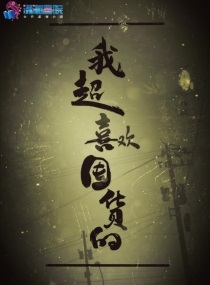 我超喜欢国货的